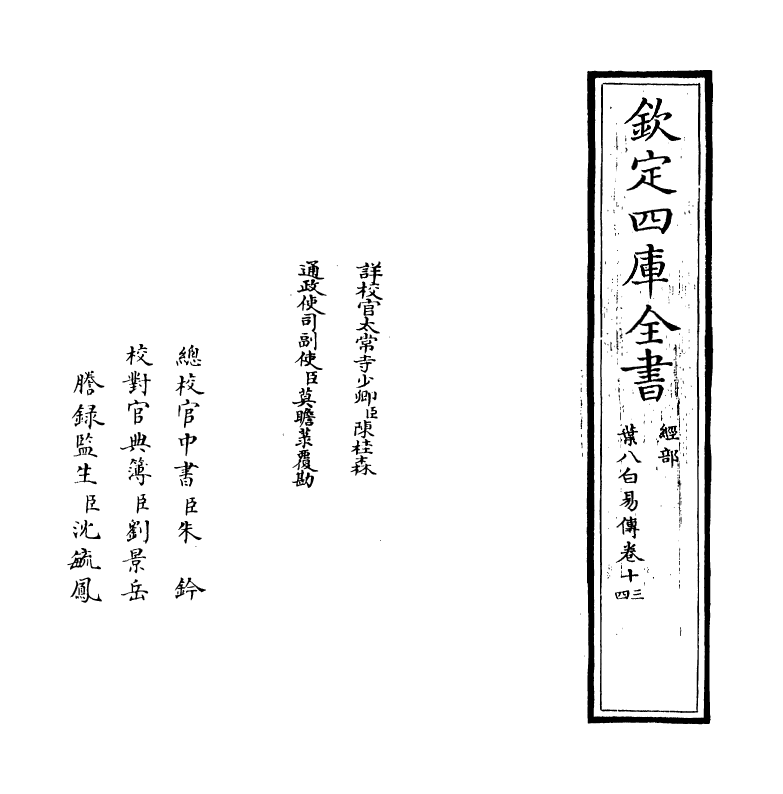 欽定四庫全書
經部
葉八白易傳卷十三四
詳校官太常寺少卿臣陳桂森
通政使司副使臣莫瞻菉覆勘
總校官中書臣朱鈐
校對官典簿臣劉景岳
謄録監生臣沈毓鳳